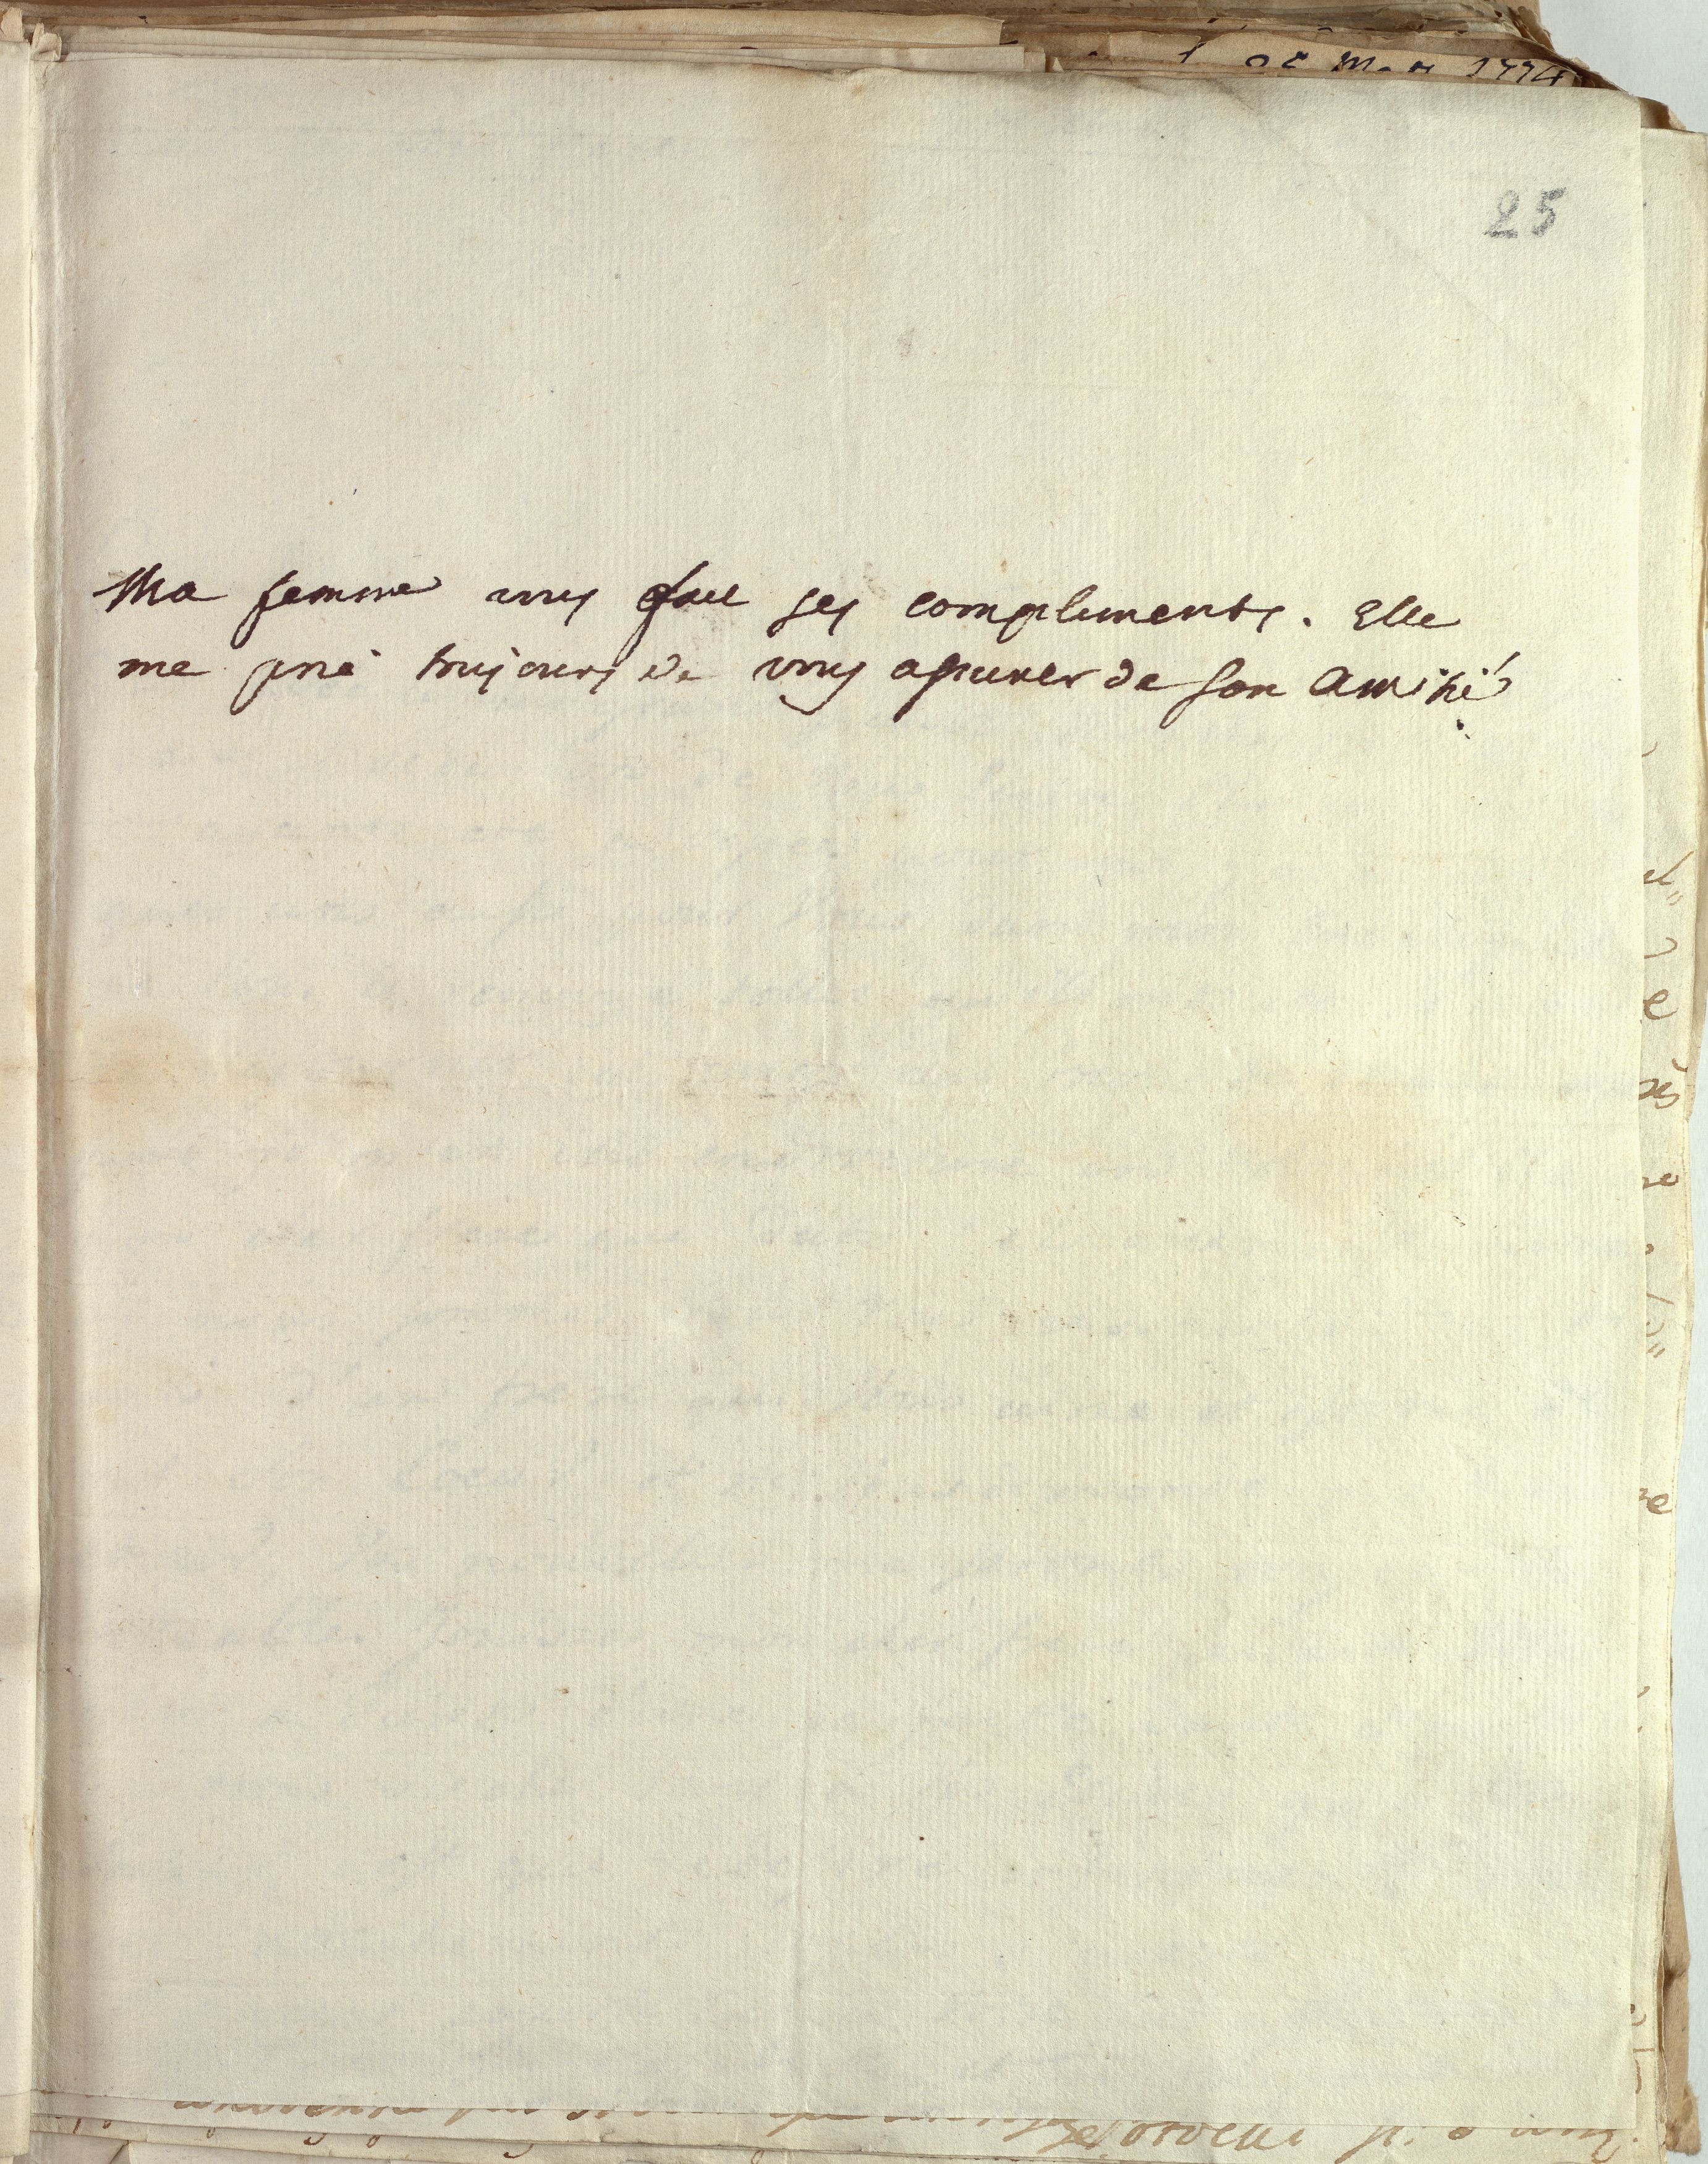 25
Ma femme vous fait ses compliments. Elle
me prie toujours de vous assurer de son amitié